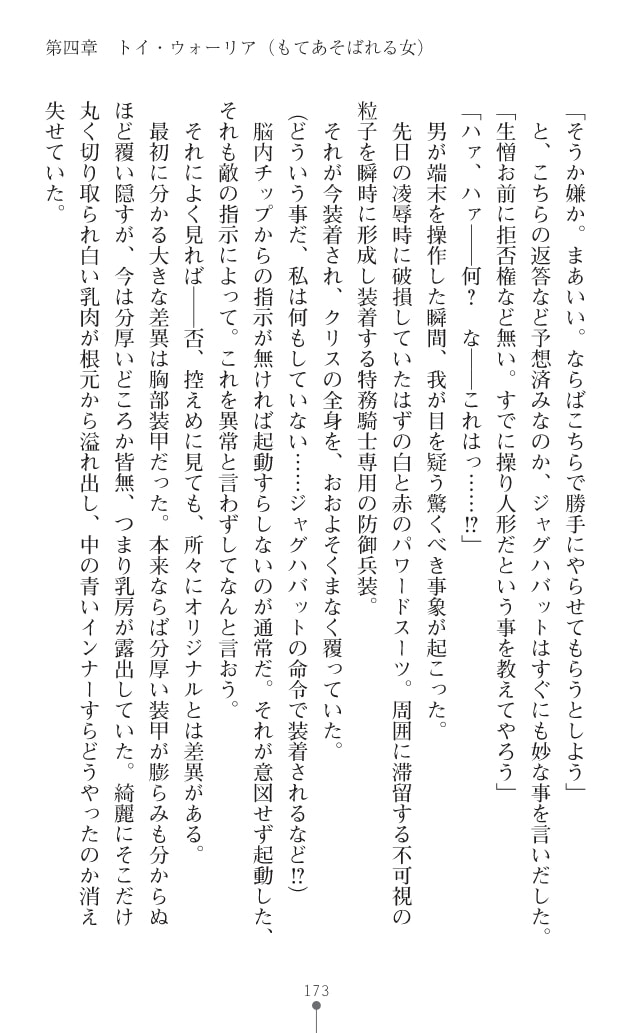 第四章　トイ・ウォーリア（もてあそばれる女）
「そうか嫌か。まあいい。ならばこちらで勝手にやらせてもらうとしよう」
　と、こちらの返答など予想済みなのか、ジャグハバットはすぐにも妙な事を言いだした。
「生憎お前に拒否権など無い。すでに操り人形だという事を教えてやろう」
「ハァ、ハァ――何？　な――これはっ……!?」
　男が端末を操作した瞬間、我が目を疑う驚くべき事象が起こった。
　先日の凌辱時に破損していたはずの白と赤のパワードスーツ。周囲に滞留する不可視の
粒子を瞬時に形成し装着する特務騎士専用の防御兵装。
　それが今装着され、クリスの全身を、おおよそくまなく覆っていた。
（どういう事だ、私は何もしていない……ジャグハバットの命令で装着されるなど!?）
　脳内チップからの指示が無ければ起動すらしないのが通常だ。それが意図せず起動した、
それも敵の指示によって。これを異常と言わずしてなんと言おう。
　それによく見れば――否、控えめに見ても、所々にオリジナルとは差異がある。
　最初に分かる大きな差異は胸部装甲だった。本来ならば分厚い装甲が膨らみも分からぬ
ほど覆い隠すが、今は分厚いどころか皆無、つまり乳房が露出していた。綺麗にそこだけ
丸く切り取られ白い乳肉が根元から溢れ出し、中の青いインナーすらどうやったのか消え
失せていた。
173